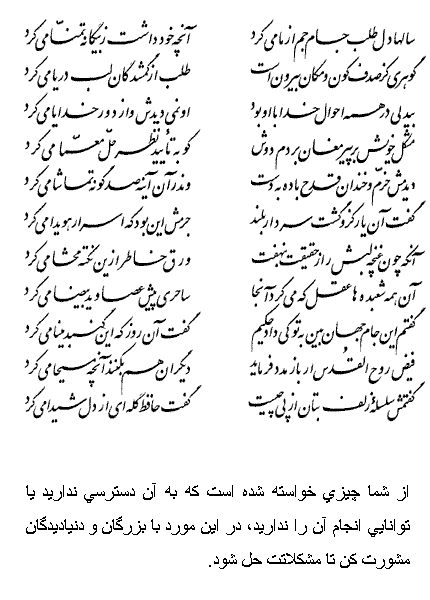 سالها دل طلب جام جم از ما می کرد آنچه خود داشت ز بیگانه تمنّا می کرد
گوهری کز صدف کون و مکان بیرون است طلب از گمشدگان لب دریا می کرد
بیدلی در همه احوال خدا با او بود او نمی دیدش و از دور خدایا می کرد
مشکل خویش بر پیر مغان بردم دوش کو به تأیید نظر حلّ معمّا می کرد
دیدمش خرّم و خندان قدح باده به دست وندر آن آینه صد گونه تماشا می کرد
گفت آن یار کزو گشت سر دار بلند جرمش این بود که اسرار هویدا می کرد
آنکه چون غنچه لبش راز حقیقت بنهفت ورق خاطر ازین نکته محشا می کرد
آن همه شعبده ها عقل که می کرد آنجا ساحری پیش عصا و ید بیضا می کرد
گفتم این جام جهان بین به تو کی داد حکیم گفت آن روز که این گنبد مینا می کرد
فیض روح القُدس ار باز مدد فرماید دیگران هم بکنند آنچه مسیحا می کرد
گفتمش سلسلهٔ زلف بتان از پی چیست گفت حافظ گله ای از دل شیدا می کرد
از شما چيزي خواسته شده است که به آن دسترسي نداريد يا
توانايي انجام آن را نداريد، در اين مورد با بزرگان و دنياديدگان
مشورت کن تا مشکلاتت حل شود.